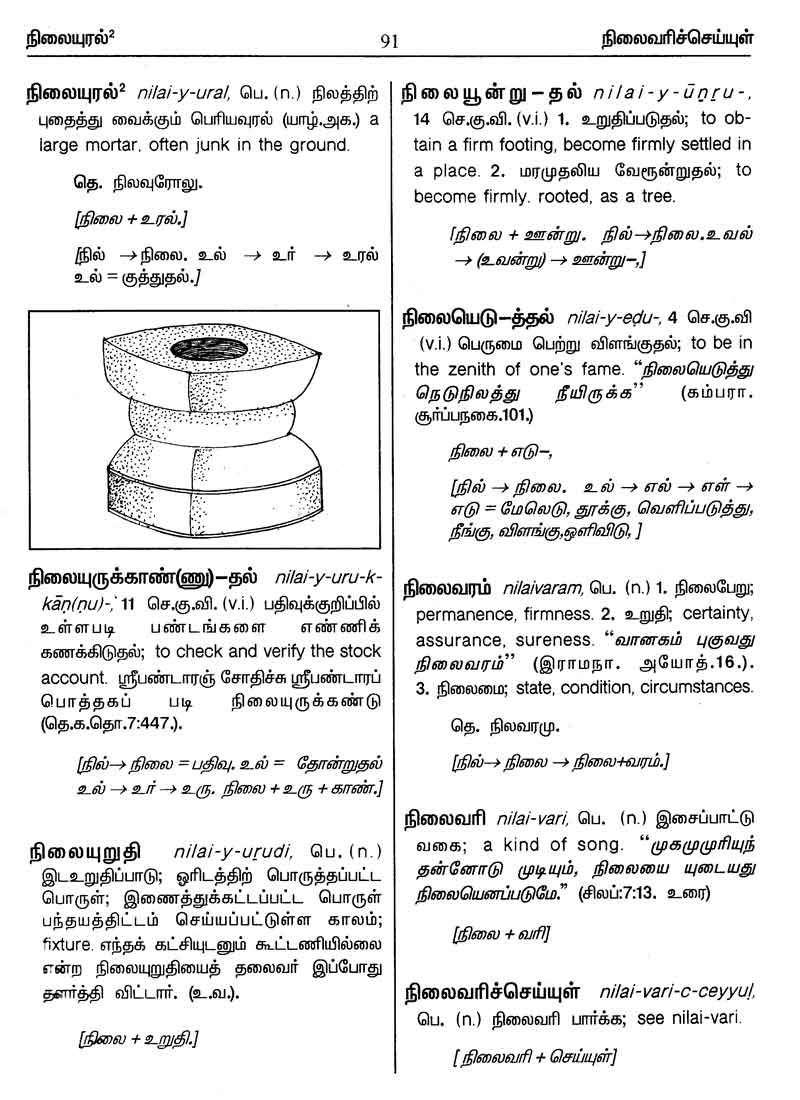 நிலையுரல்² 91 நிலைவரிச்செய்யுள்
நிலையுரல்² nilai-y-ural, பெ. (n.) நிலத்திற்
புதைத்து வைக்கும் பெரியவுரல் (யாழ்.அக.) a
large mortar, often junk in the ground.
தெ. நிலவுரோலு.
[நிலை + உரல்.]
[நில் → நிலை. உல் → உர் → உரல்
உல் = குத்துதல்.]
நிலையுருக்காண்(ணு)-தல் nilai-y-uru-k-
kāṇ(ṇu)-, 11 செ.கு.வி. (v.i.) பதிவுக்குறிப்பில்
உள்ளபடி பண்டங்களை எண்ணிக்
கணக்கிடுதல்; to check and verify the stock
account. ஸ்ரீபண்டாரஞ் சோதிச்சு ஸ்ரீபண்டாரப்
பொத்தகப் படி நிலையுருக்கண்டு
(தெ.க.தொ.7:447.).
[நில்→ நிலை = பதிவு. உல் = தோன்றுதல்
உல் → உர் → உரு. நிலை + உரு + காண்.]
நிலையுறுதி nilai-y-uṟudi, பெ. (n.)
இடஉறுதிப்பாடு; ஓரிடத்திற் பொருத்தப்பட்ட
பொருள்; இணைத்துக்கட்டப்பட்ட பொருள்
பந்தயத்திட்டம் செய்யப்பட்டுள்ள காலம்;
fixture. எந்தக் கட்சியுடனும் கூட்டணியில்லை
என்ற நிலையுறுதியைத் தலைவர் இப்போது
தளர்த்தி விட்டார். (உ.வ.).
[நிலை + உறுதி.]
நிலையூன்று-தல் nilai-y-ūṉṟu-,
14 செ.கு.வி. (v.i.) 1. உறுதிப்படுதல்; to ob-
tain a firm footing, become firmly settled in
a place. 2. மரமுதலிய வேரூன்றுதல்; to
become firmly. rooted, as a tree.
[நிலை + ஊன்று. நில்→நிலை.உவல்
→ (உவன்று) → ஊன்று-,]
நிலையெடு-த்தல் nilai-y-eḍu-, 4 செ.கு.வி
(v.i.) பெருமை பெற்று விளங்குதல்; to be in
the zenith of one's fame. “நிலையெடுத்து
நெடுநிலத்து நீயிருக்க” (கம்பரா.
சூர்ப்பநகை.101.)
நிலை + எடு-,
[நில் → நிலை. உல் → எல் → எள் →
எடு = மேலெடு, தூக்கு, வெளிப்படுத்து,
நீங்கு, விளங்கு,ஒளிவிடு, ]
நிலைவரம் nilaivaram, பெ. (n.) 1. நிலைபேறு;
permanence, firmness. 2. உறுதி; certainty,
assurance, sureness. “வானகம் புகுவது
நிலைவரம்” (இராமநா. அயோத்.16.).
3. நிலைமை; state, condition, circumstances.
தெ. நிலவரமு.
[நில்→ நிலை → நிலை+வரம்.]
நிலைவரி nilai-vari, பெ. (n.) இசைப்பாட்டு
வகை; a kind of song. “முகமுமுரியுந்
தன்னோடு முடியும், நிலையை யுடையது
நிலையெனப்படுமே.” (சிலப்:7:13. உரை)
[நிலை + வரி]
நிலைவரிச்செய்யுள் nilai-vari-c-ceyyuḷ,
பெ. (n.) நிலைவரி பார்க்க; see nilai-vari.
[ நிலைவரி + செய்யுள்]